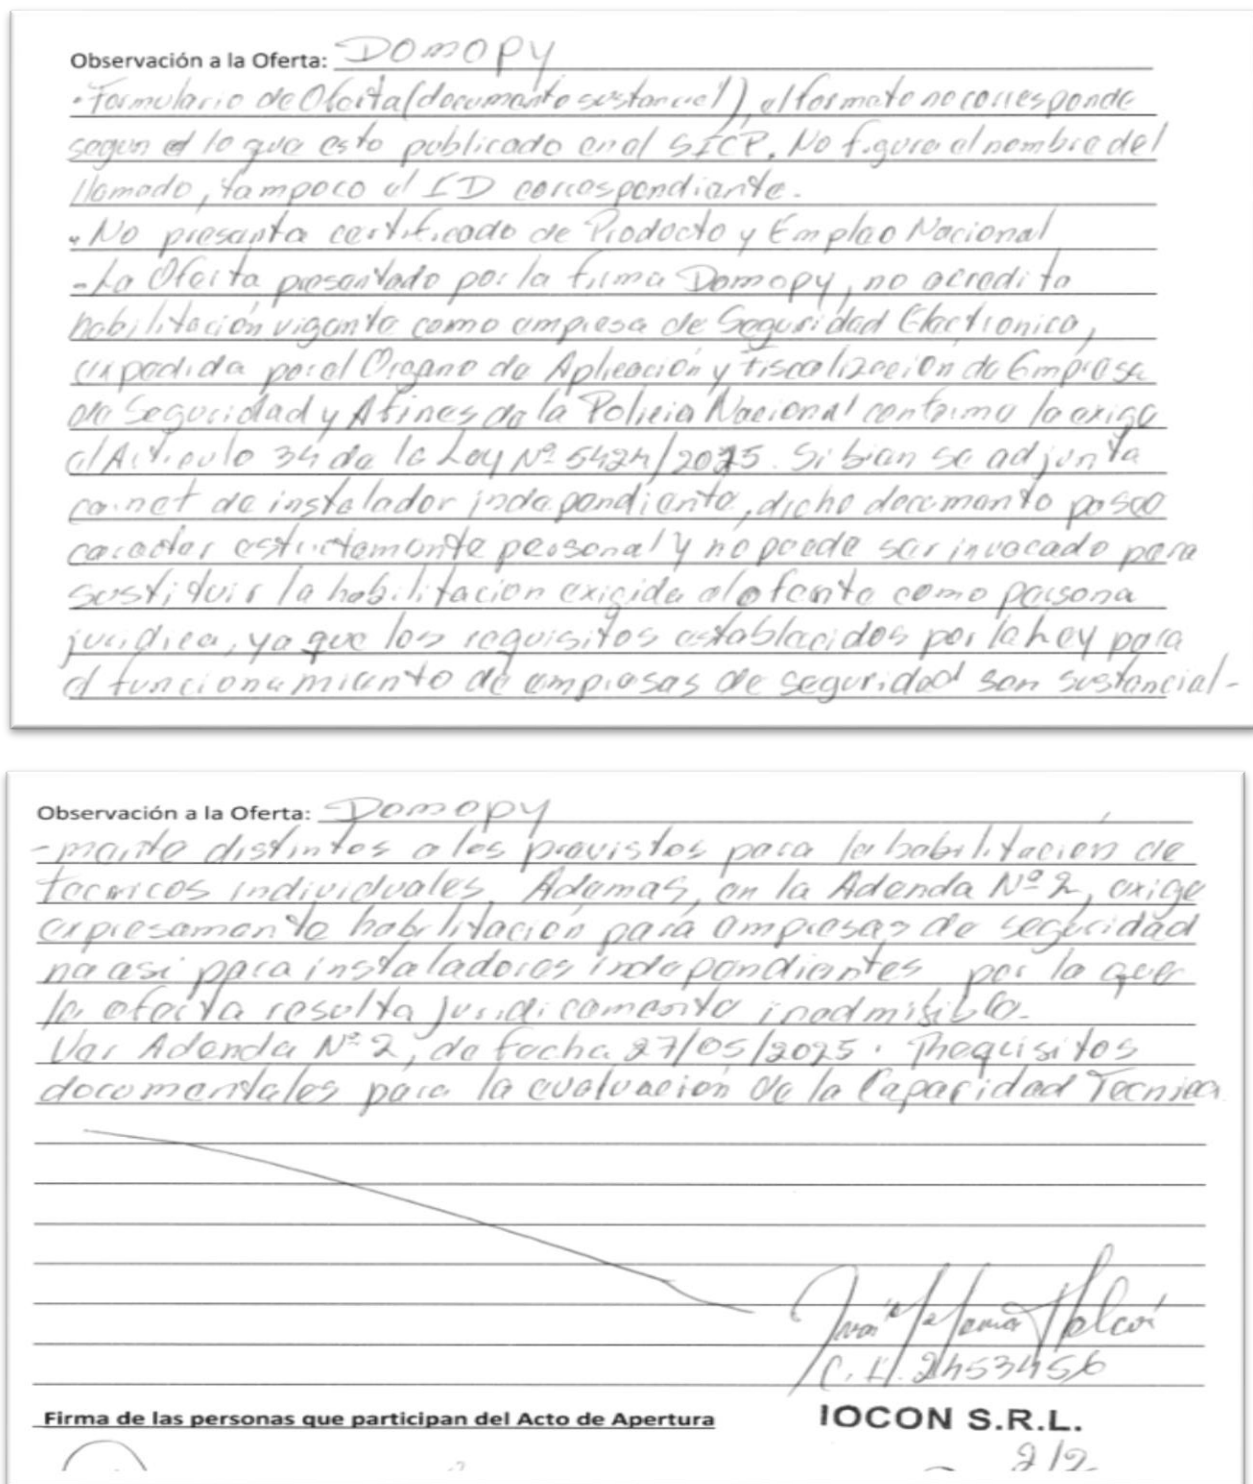 Observación a la Oferta: DOMOPY
• Formulario de Oferta (documento sustancial), el formato no corresponde
segun el lo que esta publicado en el SICP. No figura el nombre del
llamado, tampoco el ID correspondiente.
• No presenta certificado de Producto y Empleo Nacional
- La Oferta presentado por la firma Domopy, no acredita
habilitación vigente como empresa de Seguridad Electronica,
expedida por el Organo de Aplicación y Fiscalización de Empresa
de Seguridad y Afines de la Policia Nacional conforme lo exige
el Articulo 34 de la Ley Nº 5424/2025. Si bien se adjunta
carnet de instalador independiente, dicho documento posee
caracter estrictamente personal y no puede ser invocado para
sustituir la habilitacion exigida al oferente como persona
juridica, ya que los requisitos establecidos por la ley para
el funcionamiento de empresas de seguridad son sustancial-
Observación a la Oferta: Domopy
-mente distintos a los previstos para la habilitación de
tecnicos individuales. Ademas, en la Adenda Nº 2, exige
expresamente habilitación para empresas de seguridad
no asi para instaladores independientes por lo que
la oferta resulta juridicamente inadmisible.
Ver Adenda Nº 2, de fecha 27/05/2025. Requisitos
documentales para la evaluación de la Capacidad Tecnica
C.I. 2453456
Firma de las personas que participan del Acto de Apertura
IOCON S.R.L.
2/2